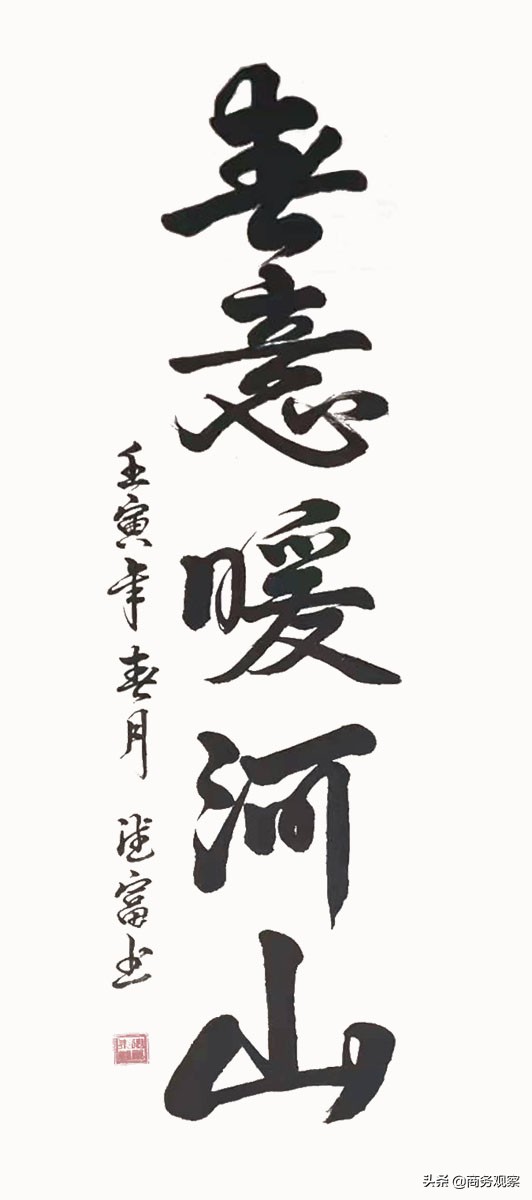 春意暖河山
壬寅年春月 德富书
头条 @商务观察